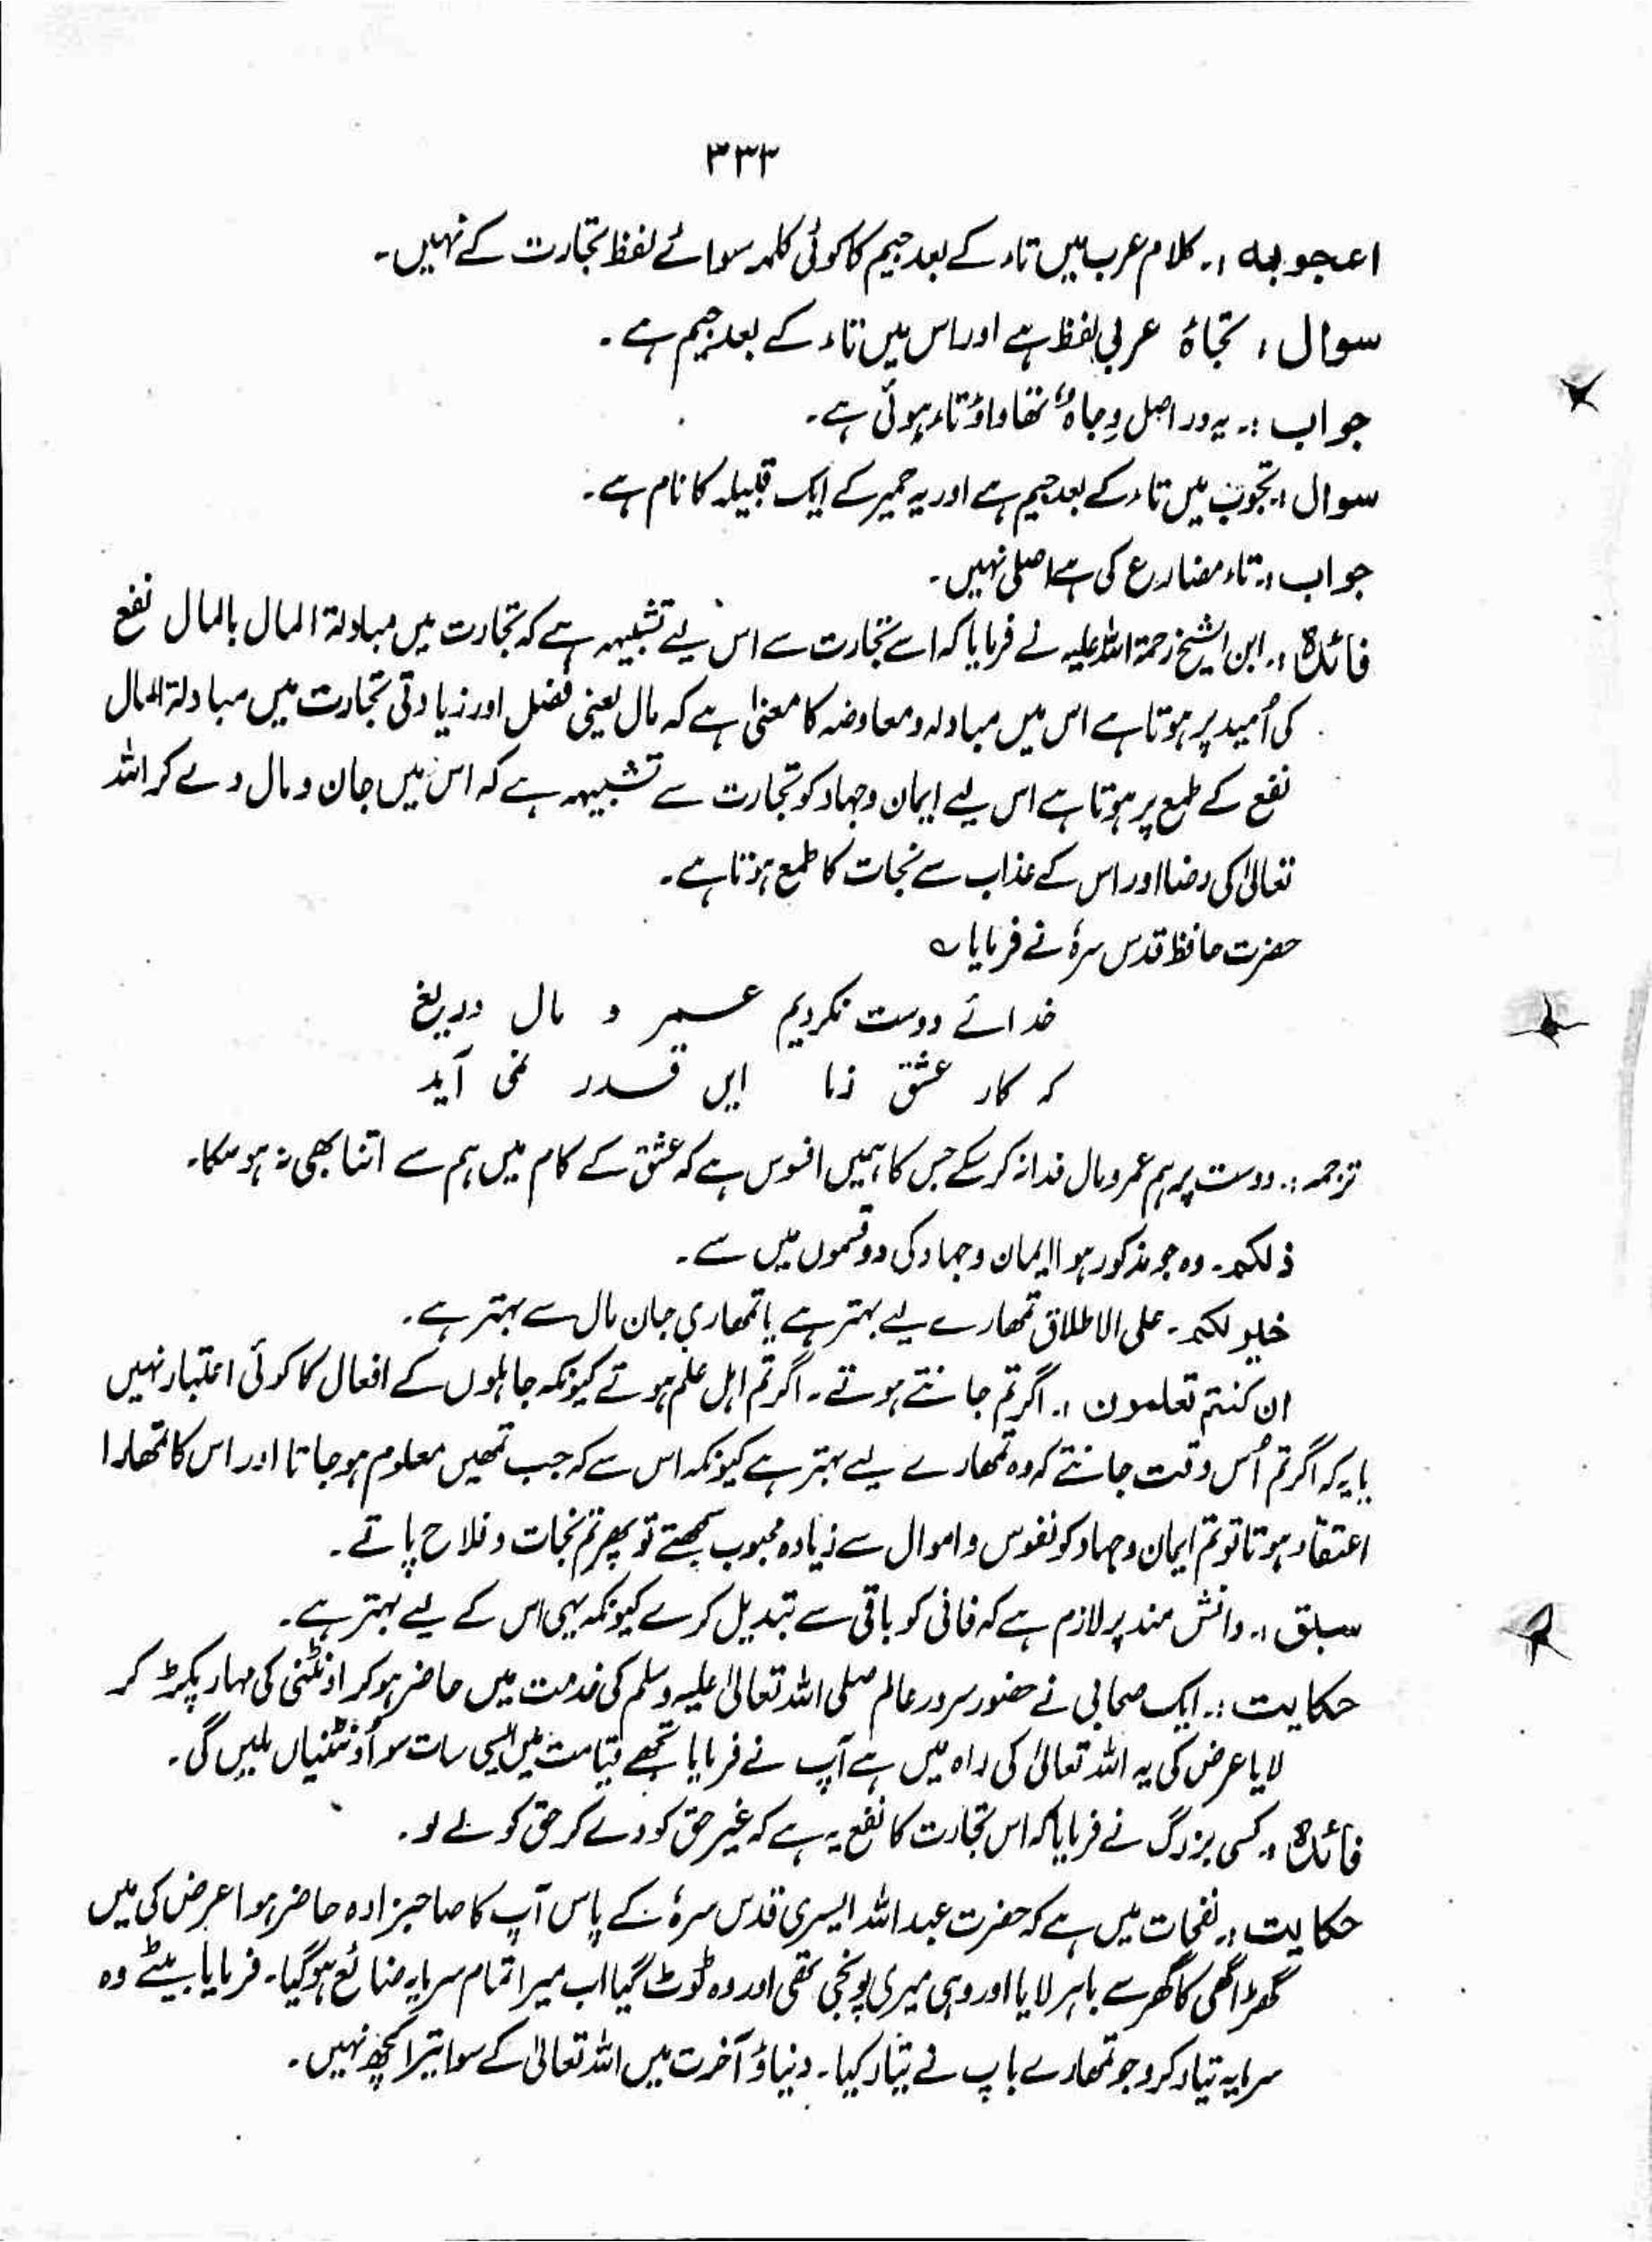 ۳۳۲
اعجوبہ :۔ کلام عرب میں تاء کے بعد جیم کا کوئی کلمہ سوائے لفظ تجارت کے نہیں۔
سوال : تجاہٌ عربی لفظ ہے اور اس میں تاء کے بعد جیم ہے ۔
جواب :۔ یہ دراصل وِجاہٌ تھا واؤ تاء ہوئی ہے۔
سوال :۔ تجوب میں تاء کے بعد جیم ہے اور یہ حمیر کے ایک قبیلہ کا نام ہے۔
جواب :۔ تاء مضارع کی ہے اصلی نہیں۔
فائدہ :۔ ابن الشیخ رحمۃ اللہ علیہ نے فرمایا کہ اسے تجارت سے اس لیے تشبیہہ ہے کہ تجارت میں مبادلۃ المال بالمال نفع
کی اُمید پر ہوتا ہے اس میں مبادلہ و معاوضہ کا معنیٰ ہے کہ مال یعنی فضل اور زیادتی تجارت میں مبادلۃ المال
نفع کے طمع پر ہوتا ہے اس لیے ایمان و جہاد کو تجارت سے تشبیہہ ہے کہ اس میں جان و مال دے کر اللہ
تعالیٰ کی رضا اور اس کے عذاب سے نجات کا طمع ہوتا ہے۔
حضرت حافظ قدس سرہٗ نے فرمایا ؎
خدائے دوست نکردیم عمر و مال دریغ
کہ کار عشق زما ایں قدر نمی آید
ترجمہ :۔ دوست پر ہم عمر و مال فدا نہ کر سکے جس کا ہمیں افسوس ہے کہ عشق کے کام میں ہم سے اتنا بھی نہ ہو سکا۔
ذلکم۔ وہ جو مذکور ہوا ایمان و جہاد کی دو قسموں میں سے۔
خیر لکم۔ علی الاطلاق تمھارے لیے بہتر ہے یا تمھاری جان مال سے بہتر ہے۔
ان کنتم تعلمون :۔ اگر تم جانتے ہوتے ۔ اگر تم اہل علم ہوتے کیونکہ جاہلوں کے افعال کا کوئی اعتبار نہیں
یا یہ کہ اگر تم اُس وقت جانتے کہ وہ تمھارے لیے بہتر ہے کیونکہ اس سے کہ جب تمھیں معلوم ہو جاتا اور اس کا تمھارا
اعتقاد ہوتا تو تم ایمان و جہاد کو نفوس و اموال سے زیادہ محبوب سمجھتے تو پھر تم نجات و فلاح پاتے ۔
سبلق :۔ دانش مند پر لازم ہے کہ فانی کو باقی سے تبدیل کرے کیونکہ یہی اس کے لیے بہتر ہے۔
حکایت :۔ ایک صحابی نے حضور سرور عالم صلی اللہ تعالیٰ علیہ وسلم کی خدمت میں حاضر ہو کر اونٹنی کی مہار پکڑ کر
لایا عرض کی یہ اللہ تعالیٰ کی راہ میں ہے آپ نے فرمایا تجھے قیامت میں ایسی سات سو اُونٹنیاں ملیں گی۔
فائدہ :۔ کسی بزرگ نے فرمایا کہ اس تجارت کا نفع یہ ہے کہ غیر حق کو دے کر حق کو لے لو۔
حکایت :۔ نفحات میں ہے کہ حضرت عبد اللہ الیسری قدس سرہٗ کے پاس آپ کا صاحبزادہ حاضر ہوا عرض کی میں
گھڑا گھی کا گھر سے باہر لایا اور وہی میری پونجی تھی اور وہ ٹوٹ گیا اب میرا تمام سرمایہ ضائع ہو گیا۔ فرمایا بیٹے وہ
سرمایہ تیار کرو جو تمھارے باپ نے تیار کیا۔ دنیا و آخرت میں اللہ تعالیٰ کے سوا تیرا کچھ نہیں۔